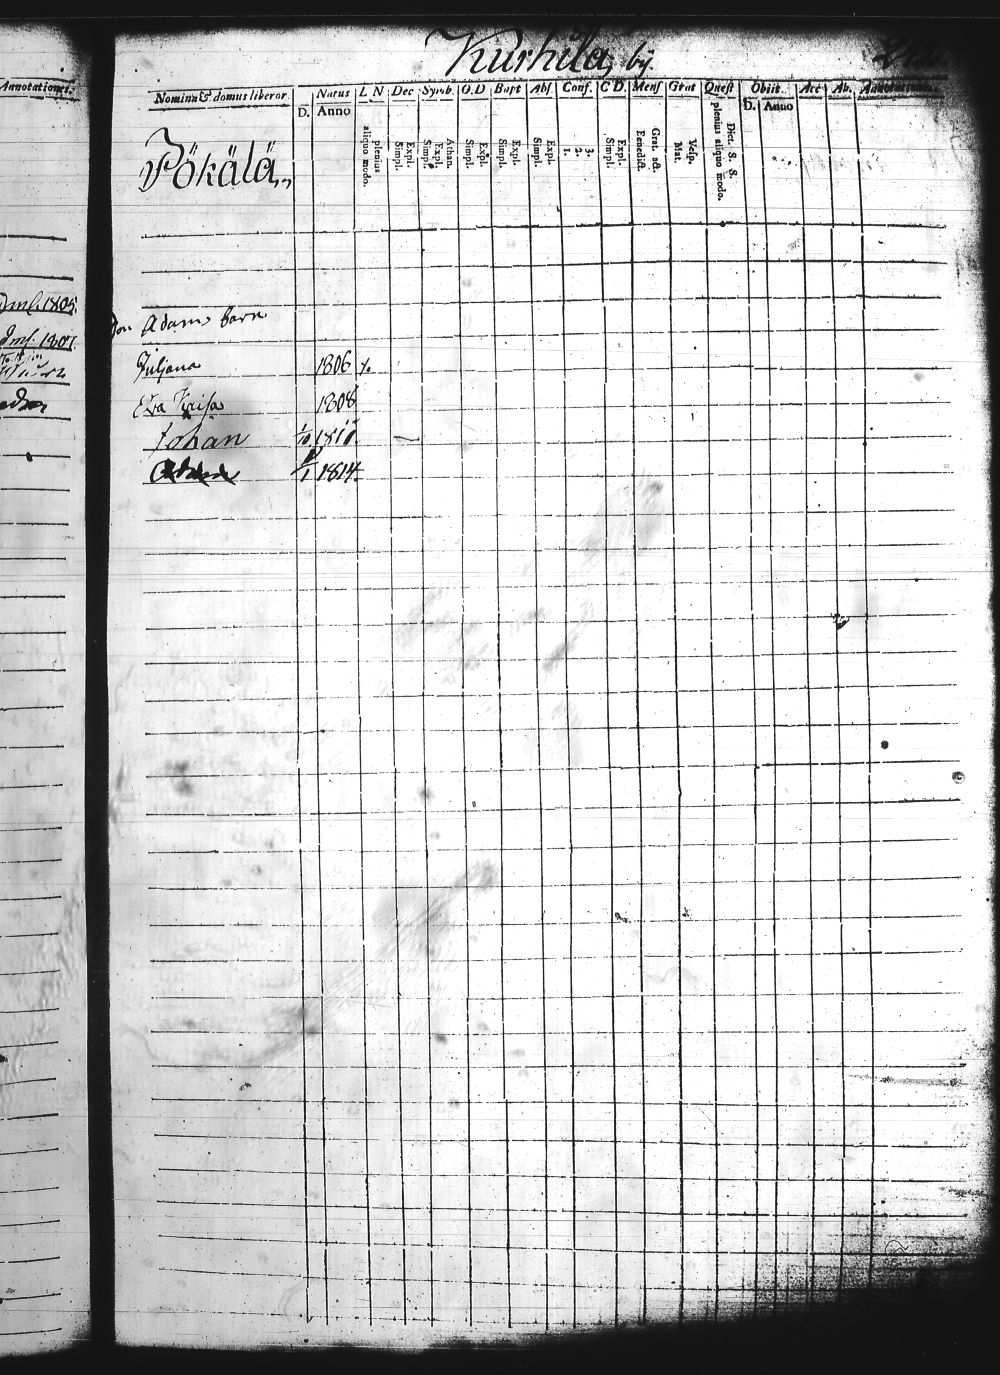 Kurhila, by.
Annotationes.
Nomina & domus liberor. Natus L N Dec Symb. O.D Bapt Abs. Conf. C D. Mens Grat Quest Obiit. Acc Ab.
D. Anno D. Anno
plenius aliquo modo. Expl. Simpl. Athan. Expl. Simpl. Expl. Simpl. Expl. Simpl. Expl. Simpl. 3. 2. 1. Expl. Simpl. Grat. act. Benedict. Vesp. Mat. Dict. S. S. plenius aliquo modo.
Pökälä,,
1805.
Adams barn
1807
Juljana 1806
Eva Kaisa 1808
Johan 1/10 1811
1814